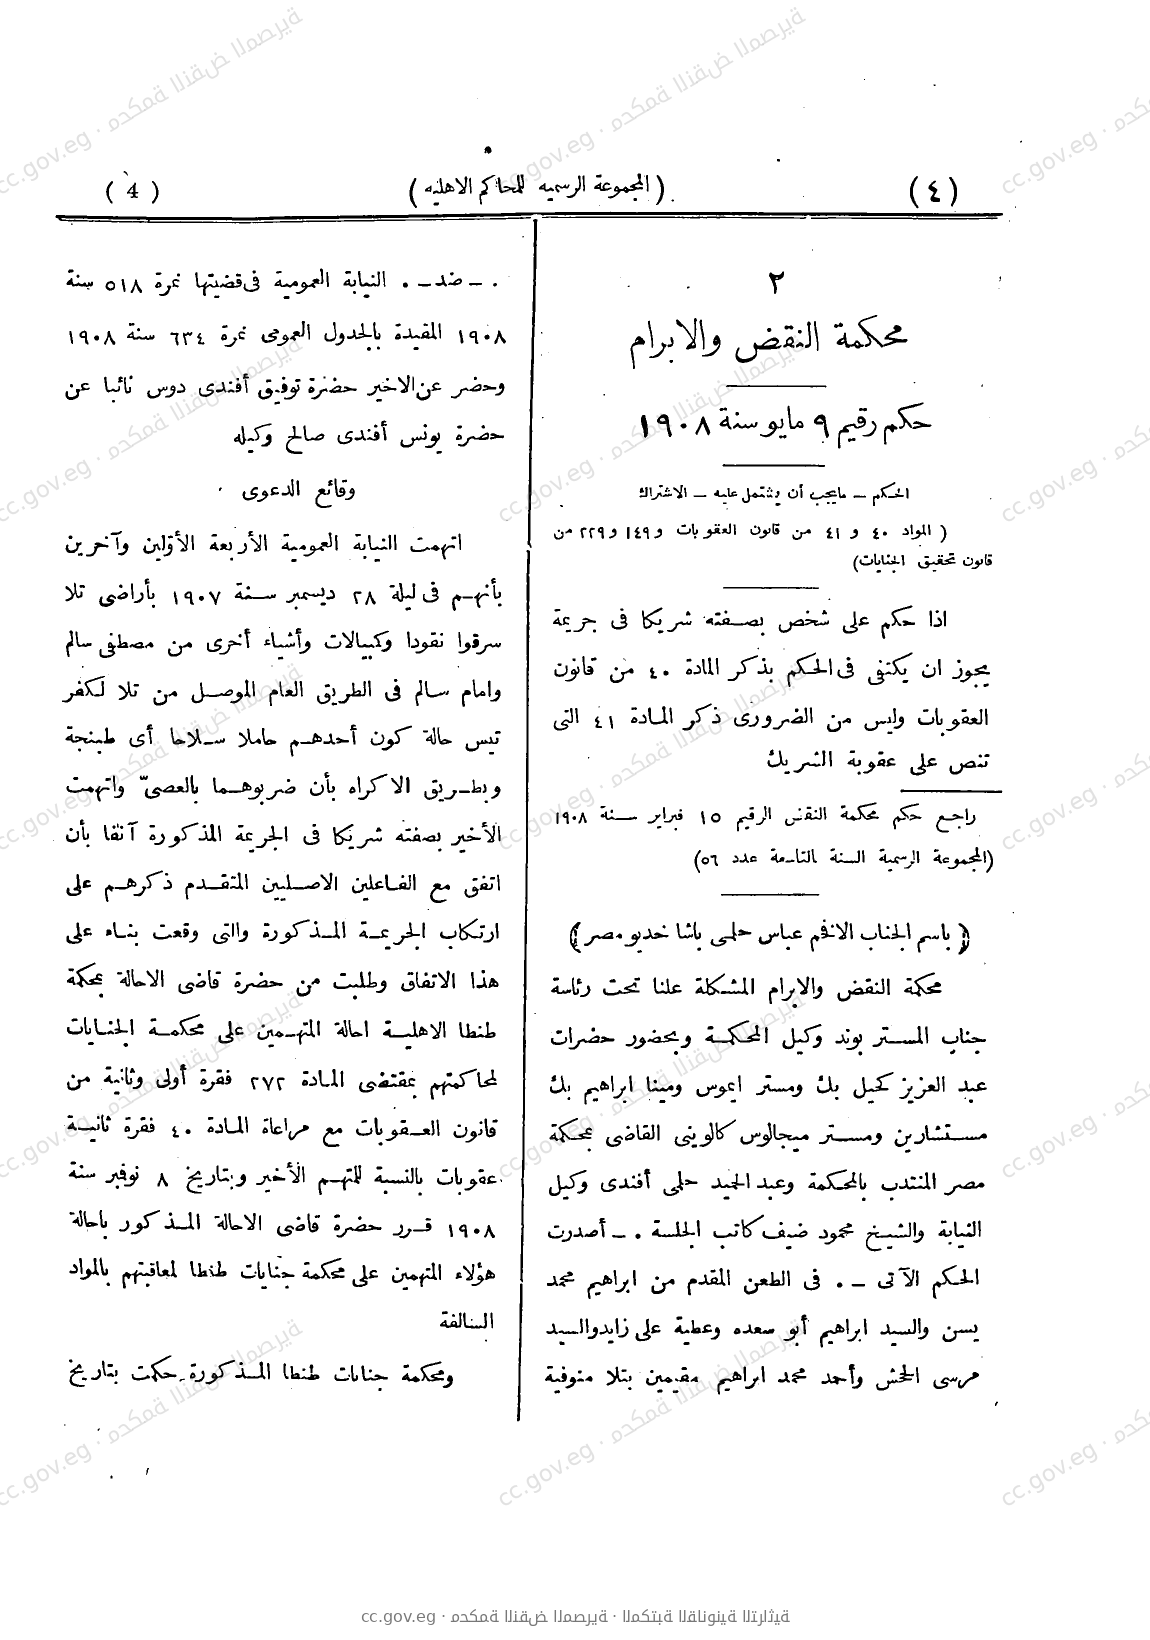 (٤)
(المجموعة الرسميه للمحاكم الاهليه)
(4)
٢
محكمة النقض والابرام
حكم رقيم ٩ مايو سنة ١٩٠٨
الحكم – مايجب أن يشتمل عليه – الاشتراك
(المواد ٤٠ و ٤١ من قانون العقوبات و ١٤٩ و ٢٢٩ من
قانون تحقيق الجنايات)
اذا حكم على شخص بصفته شريكا فى جريمة
يجوز ان يكتفى فى الحكم بذكر المادة ٤٠ من قانون
العقوبات وليس من الضرورى ذكر المادة ٤١ التى
تنص على عقوبة الشريك
راجع حكم محكمة النقض الرقيم ١٥ فبراير سنة ١٩٠٨
(المجموعة الرسمية السنة التاسعة عدد ٥٦)
(باسم الجناب الافخم عباس حلمى باشا خديو مصر)
محكمة النقض والابرام المشكلة علنا تحت رئاسة
جناب المستر بوند وكيل المحكمة وبحضور حضرات
عبد العزيز كحيل بك ومستر ايموس ومينا ابراهيم بك
مستشارين ومستر ميجالوس كالوينى القاضى بمحكمة
مصر المنتدب بالمحكمة وعبد المجيد حلمى أفندى وكيل
النيابة والشيخ محمود ضيف كاتب الجلسة . – أصدرت
الحكم الآتى – . فى الطعن المقدم من ابراهيم محمد
يسن والسيد ابراهيم أبو سعده وعطية على زايد والسيد
مرسى الخش وأحمد محمد ابراهيم مقيمين بتلا منوفية
. – ضد – . النيابة العمومية فى قضيتها نمرة ٥١٨ سنة
١٩٠٨ المقيدة بالجدول العمومى نمرة ٦٣٤ سنة ١٩٠٨
وحضر عن الاخير حضرة توفيق أفندى دوس نائبا عن
حضرة يونس أفندى صالح وكيله
وقائع الدعوى
اتهمت النيابة العمومية الأربعة الأولين وآخرين
بأنهم فى ليلة ٢٨ ديسمبر سنة ١٩٠٧ بأراضى تلا
سرقوا نقودا وكمبيالات وأشياء أخرى من مصطفى سالم
وامام سالم فى الطريق العام الموصل من تلا لكفر
تيس حالة كون أحدهم حاملا سلاحا أى طبنجة
وبطريق الاكراه بأن ضربوهما بالعصىّ واتهمت
الأخير بصفته شريكا فى الجريمة المذكورة آنفا بأن
اتفق مع الفاعلين الاصليين المتقدم ذكرهم على
ارتكاب الجريمة المذكورة والتى وقعت بناء على
هذا الاتفاق وطلبت من حضرة قاضى الاحالة بمحكمة
طنطا الاهلية احالة المتهمين على محكمة الجنايات
لمحاكمتهم بمقتضى المادة ٢٧٢ فقرة أولى وثانية من
قانون العقوبات مع مراعاة المادة ٤٠ فقرة ثانية
عقوبات بالنسبة للمتهم الأخير وبتاريخ ٨ نوفبر سنة
١٩٠٨ قرر حضرة قاضى الاحالة المذكور باحالة
هؤلاء المتهمين على محكمة جنايات طنطا لمعاقبتهم بالمواد
السالفة
ومحكمة جنايات طنطا المذكورة حكمت بتاريخ
cc.gov.eg · محكمة النقض المصرية · المكتبة القانونية التراثية